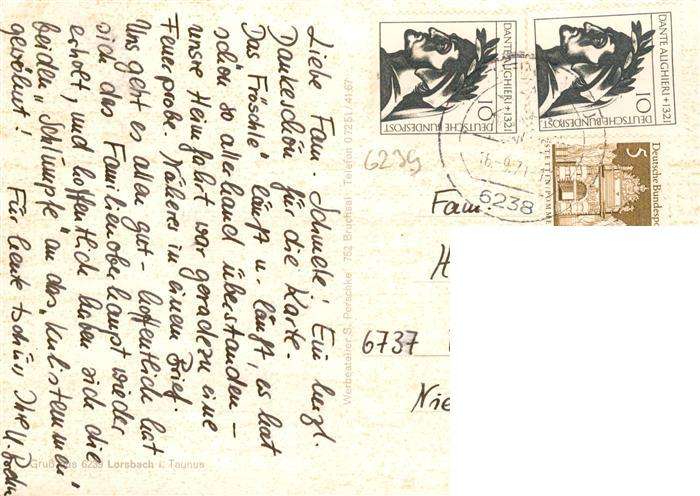 Liebe Fam. Schmelz! Ein herzl.
Dankeschön für die Karte.
Das "Fröschle" läuft u. läuft, es hat
schon so allerhand überstanden -
unsre Heimfahrt war geradezu eine
Feuerprobe. Näheres in einem Brief.
Uns geht es allen gut - hoffentlich hat
sich das Familienoberhaupt wieder
erholt, und hoffentlich haben sich die
beiden "Schlümpfe" an das
gewöhnt! Für heute tschüss Ihre
Gruß aus 6239 Lorsbach i. Taunus
Werbeatelier S. Perschke 752 Bruchsal Telefon 07251/4167
DANTE ALIGHIERI +1321
10
DEUTSCHE BUNDESPOST
DANTE ALIGHIERI +1321
10
DEUTSCHE BUNDESPOST
5
Deutsche Bundespost
STETTIN/POMM
6239
-9.71
6238
Fam.
H
6737
Nie